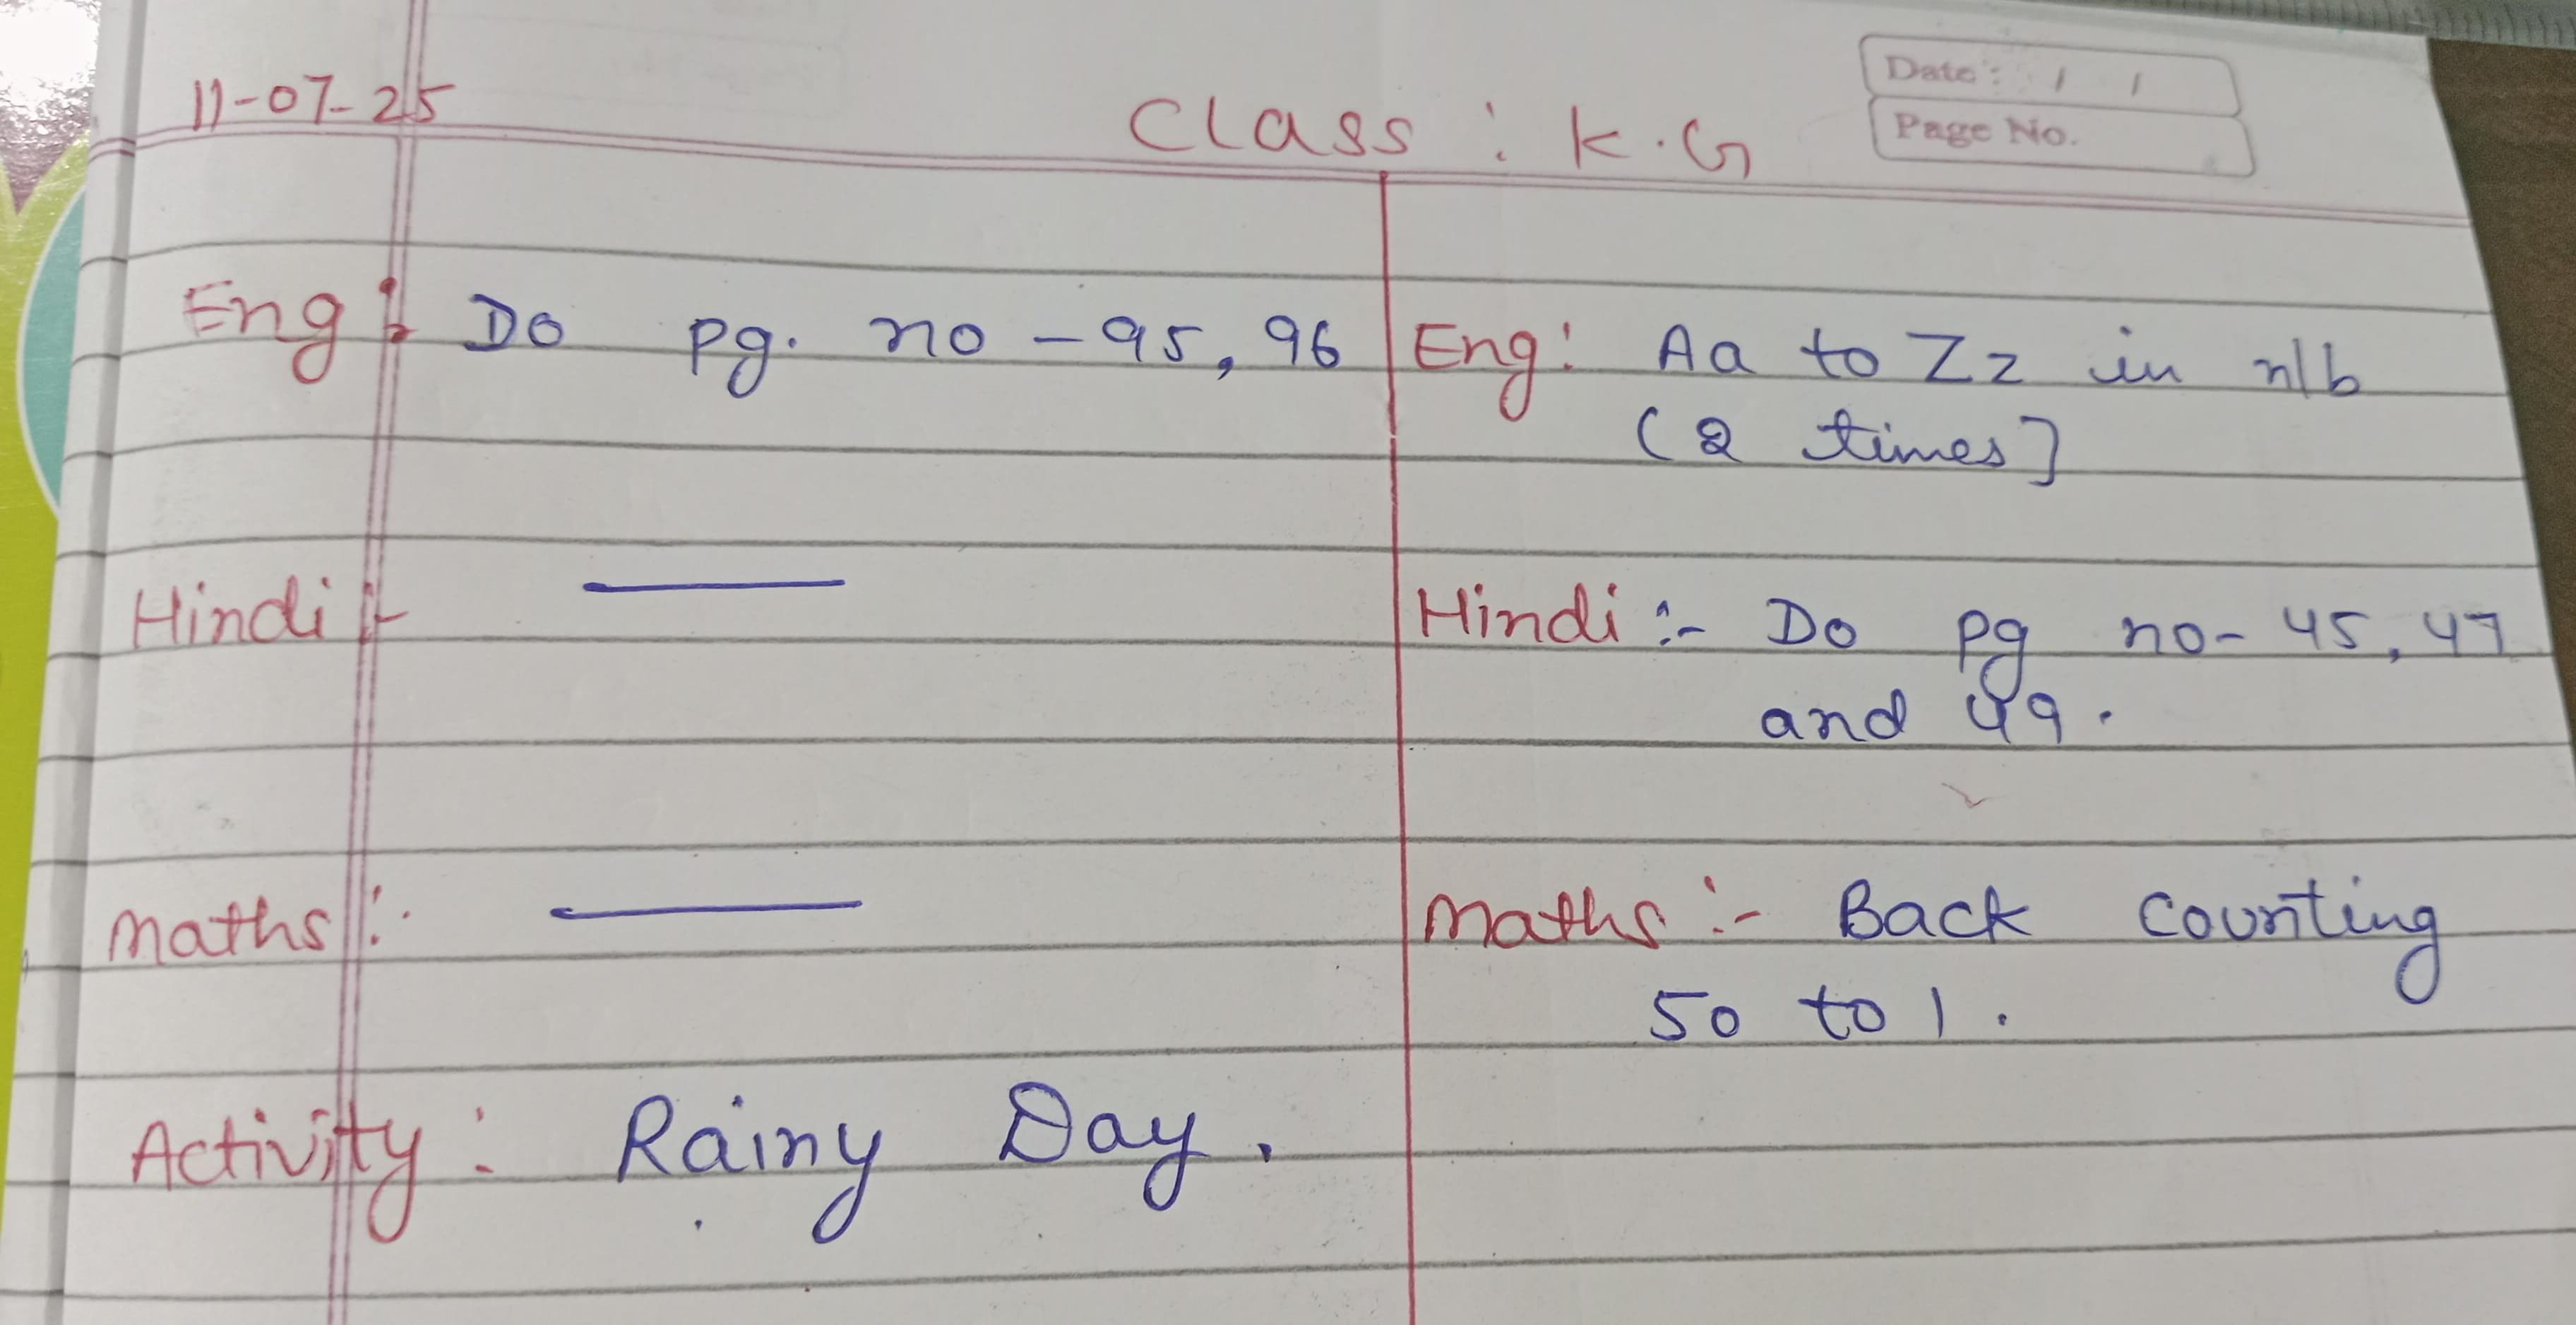 11-07-25
Class : K.G
Date : / /
Page No.
Eng : Do pg. no - 95, 96
Hindi :-
Maths :-
Activity : Rainy Day.
Eng : Aa to Zz in n/b
(2 times]
Hindi :- Do pg no- 45, 47
and 49.
Maths :- Back counting
50 to 1.